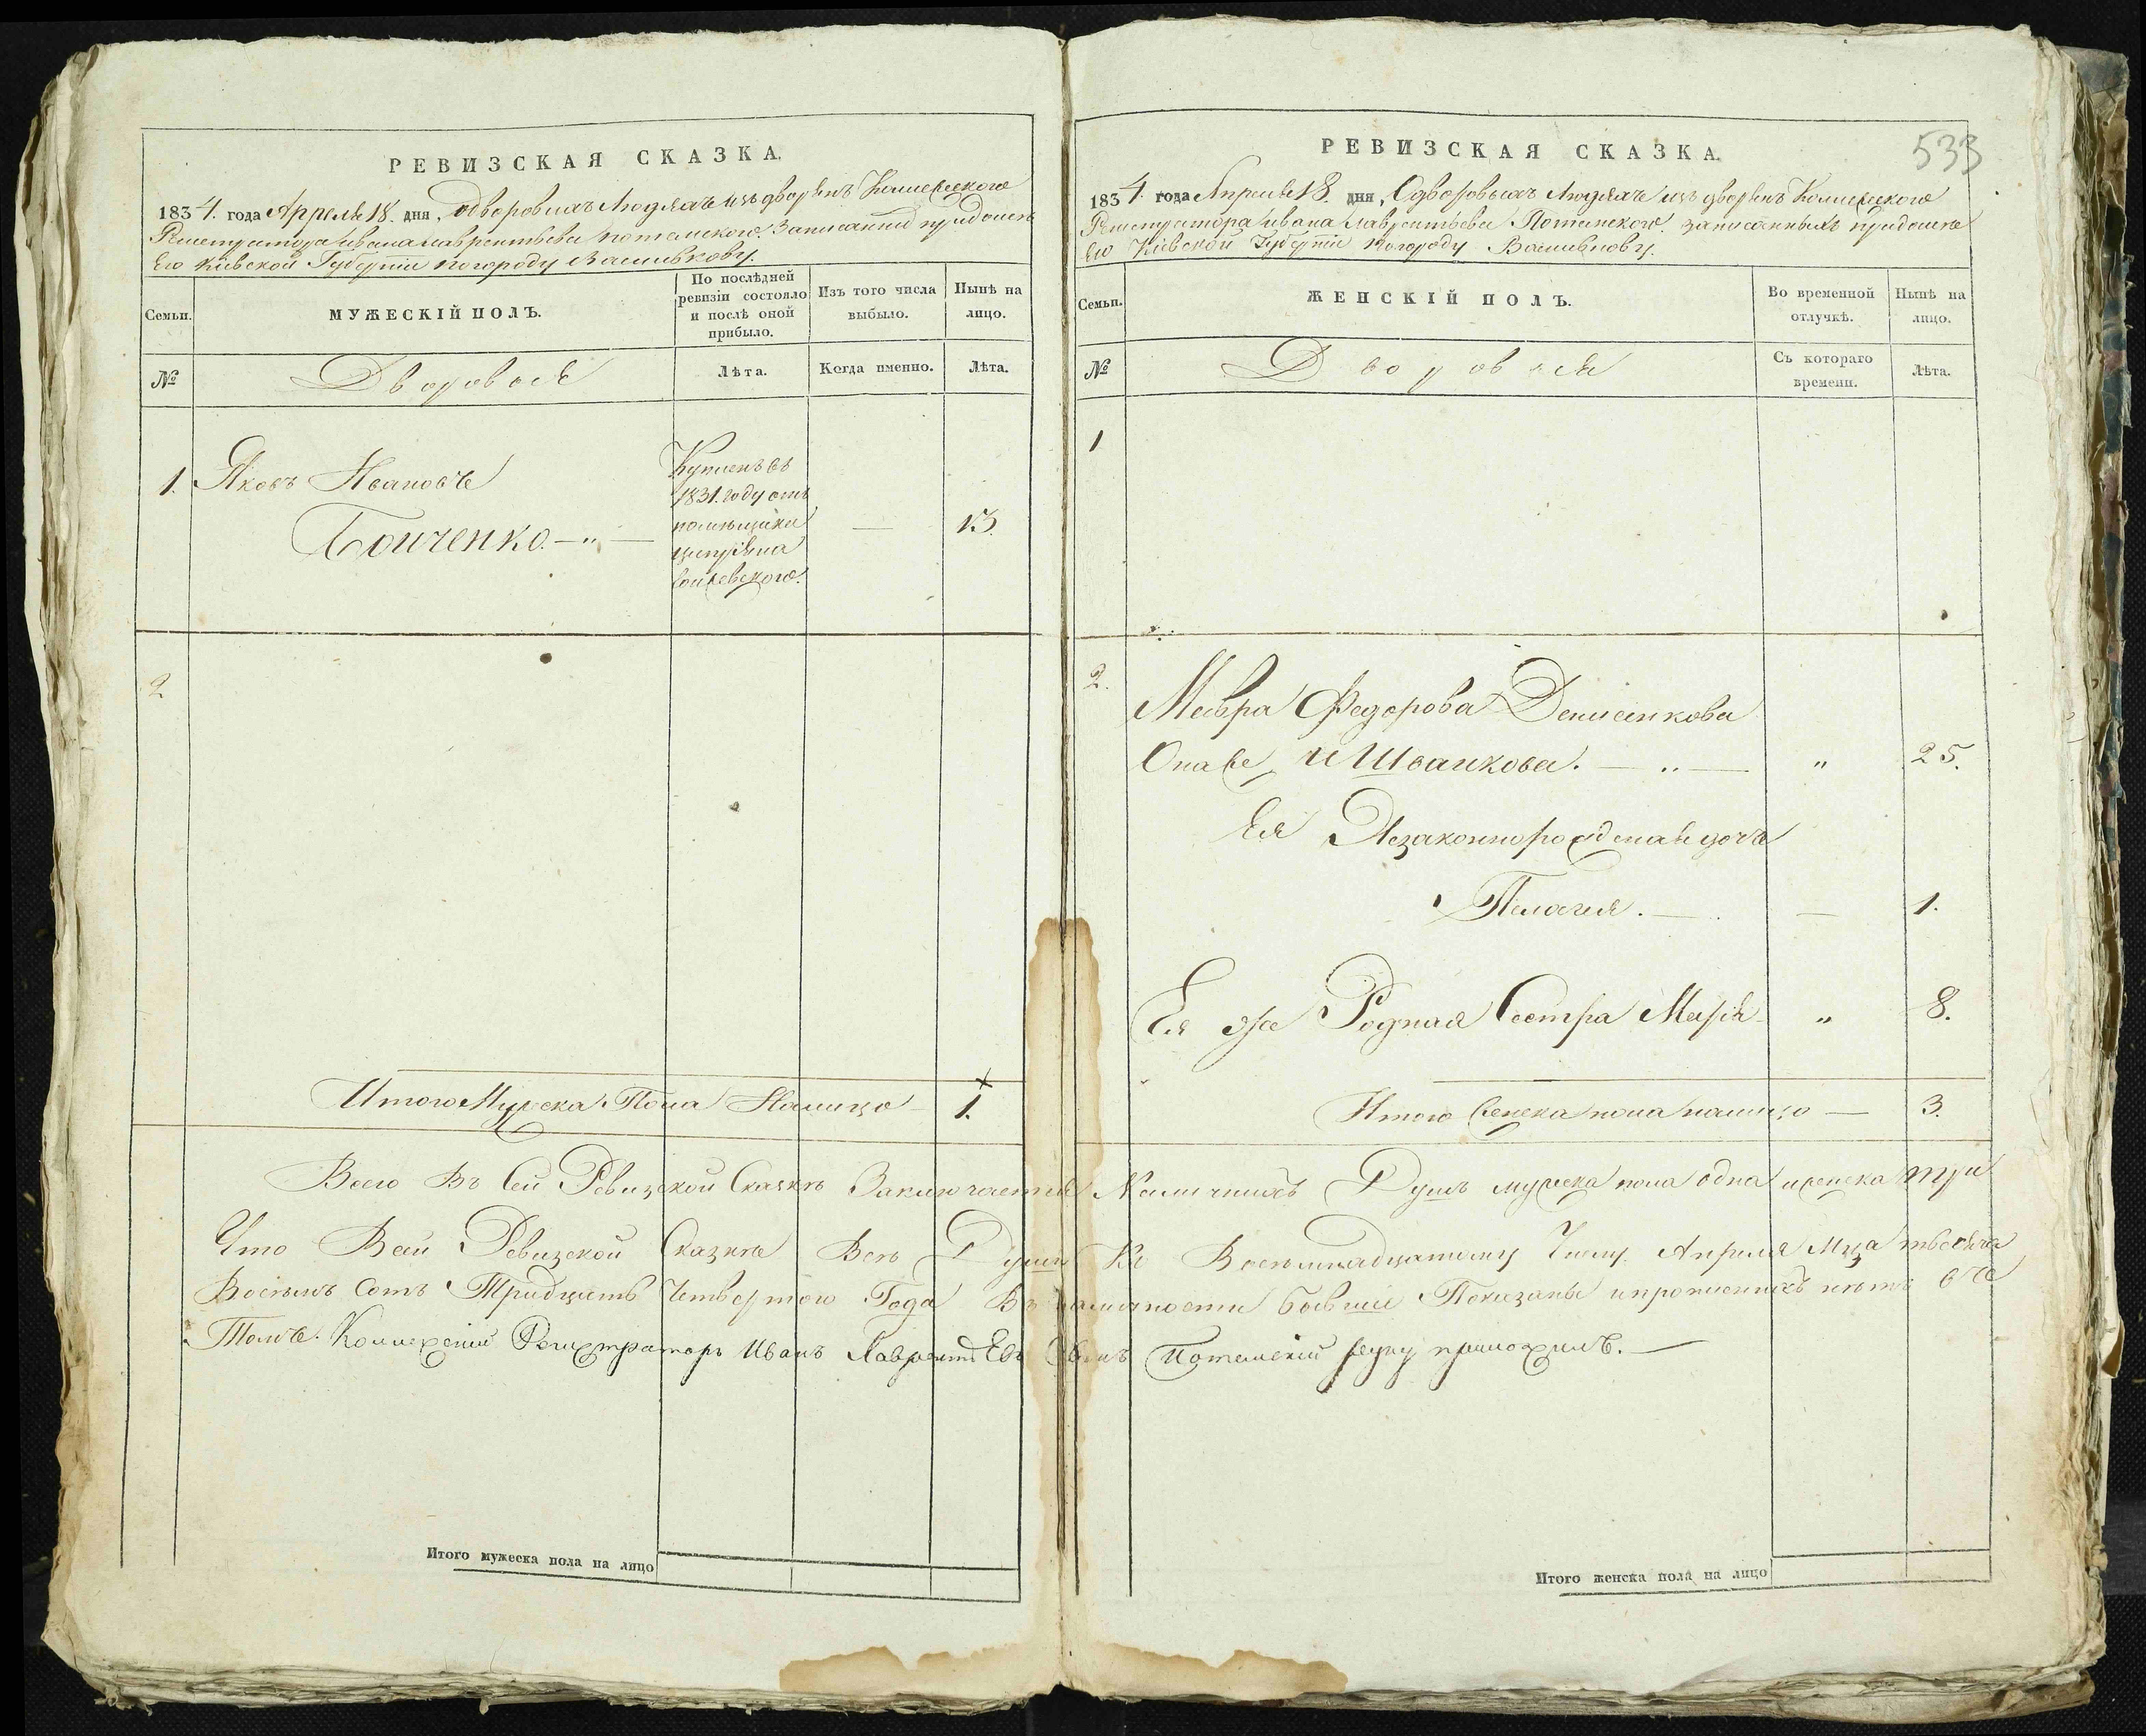 РЕВИЗСКАЯ СКАЗКА.
1834. года Апреля 18. дня, Одворовыхъ Людяхъ изъ дворянъ Колежского
Регистратора Ивана Лаврентьева Потамского. Записанныхъ придоме
Его Кіевской Губерніи погороду Василькову.
Семьи.
МУЖЕСКІЙ ПОЛЪ.
По послѣдней ревизіи состояло и послѣ оной прибыло.
Изъ того числа выбыло.
Нынѣ на лицо.
№
Дворовыя
Лѣта.
Когда именно.
Лѣта.
1. Яковъ Ивановъ
Бойченко. — " —
Купленъ въ
1831. году отъ
помѣщика
— 13.
2
Итого Мужеска Пола Налицо — 1.
Итого мужеска пола на лицо
РЕВИЗСКАЯ СКАЗКА.
533
1834 года Апреля 18. дня, Одворовыхъ Людяхъ изъ дворянъ Колежского
Регистратора Ивана Лаврентьева Потамского. записанныхъ придоме
Его Кіевской Губерніи погороду Василькову.
Семьи.
ЖЕНСКІЙ ПОЛЪ.
Во временной отлучкѣ.
Нынѣ на лицо.
№
Дворовыя
Съ котораго времени.
Лѣта.
1
2. Мавра Федорова
Она же и Швайкова. — " — " 25.
Ея Незаконнорожденная дочь
Пелагея. — — 1.
Ея же Родная Сестра Марія " 8.
Итого женска пола налицо — 3.
Всего Въ Сей Ревизской Сказкѣ Заключается Наличныхъ Душъ мужеска пола одна и женска три
Что Всей Ревизской Сказкѣ Всѣ Души Къ Восемнадцатому Числу Апреля Мца тысяча
Восемь Сотъ Тридцать Четвертого Года Въ наличности бывшие Показаны и прописныхъ нѣтъ въ
Томъ Коллежский Регистраторъ Иванъ Лаврентьевъ Сынъ Потамский руку приложилъ. —
Итого женска пола на лицо